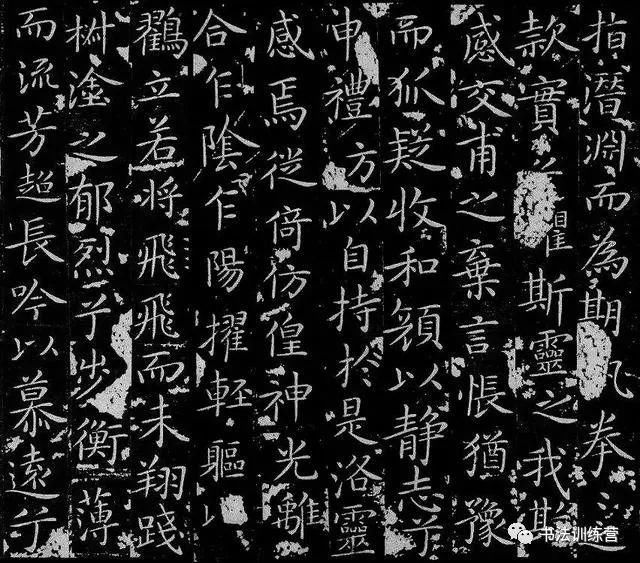 指潛淵而為期拳〻之
款實兮懼斯靈之我
感交甫之棄言悵猶豫
而狐疑收和顔以静志兮
申禮防以自持於是洛靈
感焉徙倚彷徨神光離
合乍陰乍陽擢軽軀以
鸛立若將飛飛而未翔踐
椒塗之郁烈兮步衡薄
而流芳超長吟以慕遠兮
书法训练营